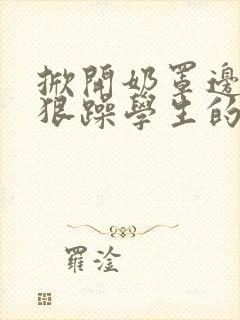 掀開奶罩邊
狠躁學生的
羅淦